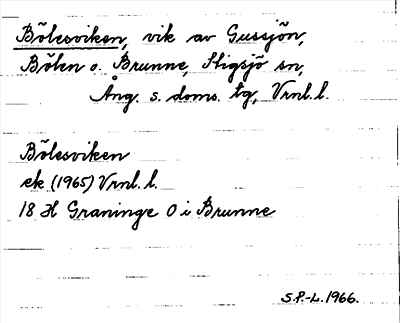 Bölesviken, vik av Gussjön,
Bölen o. Brunne, Stigsjö sn,
Ång. s. doms. tg, Vrnl. l.
Bölesviken
ek (1965) Vrnl. l.
18 H Graninge O i Brunne
S.P.-L. 1966.